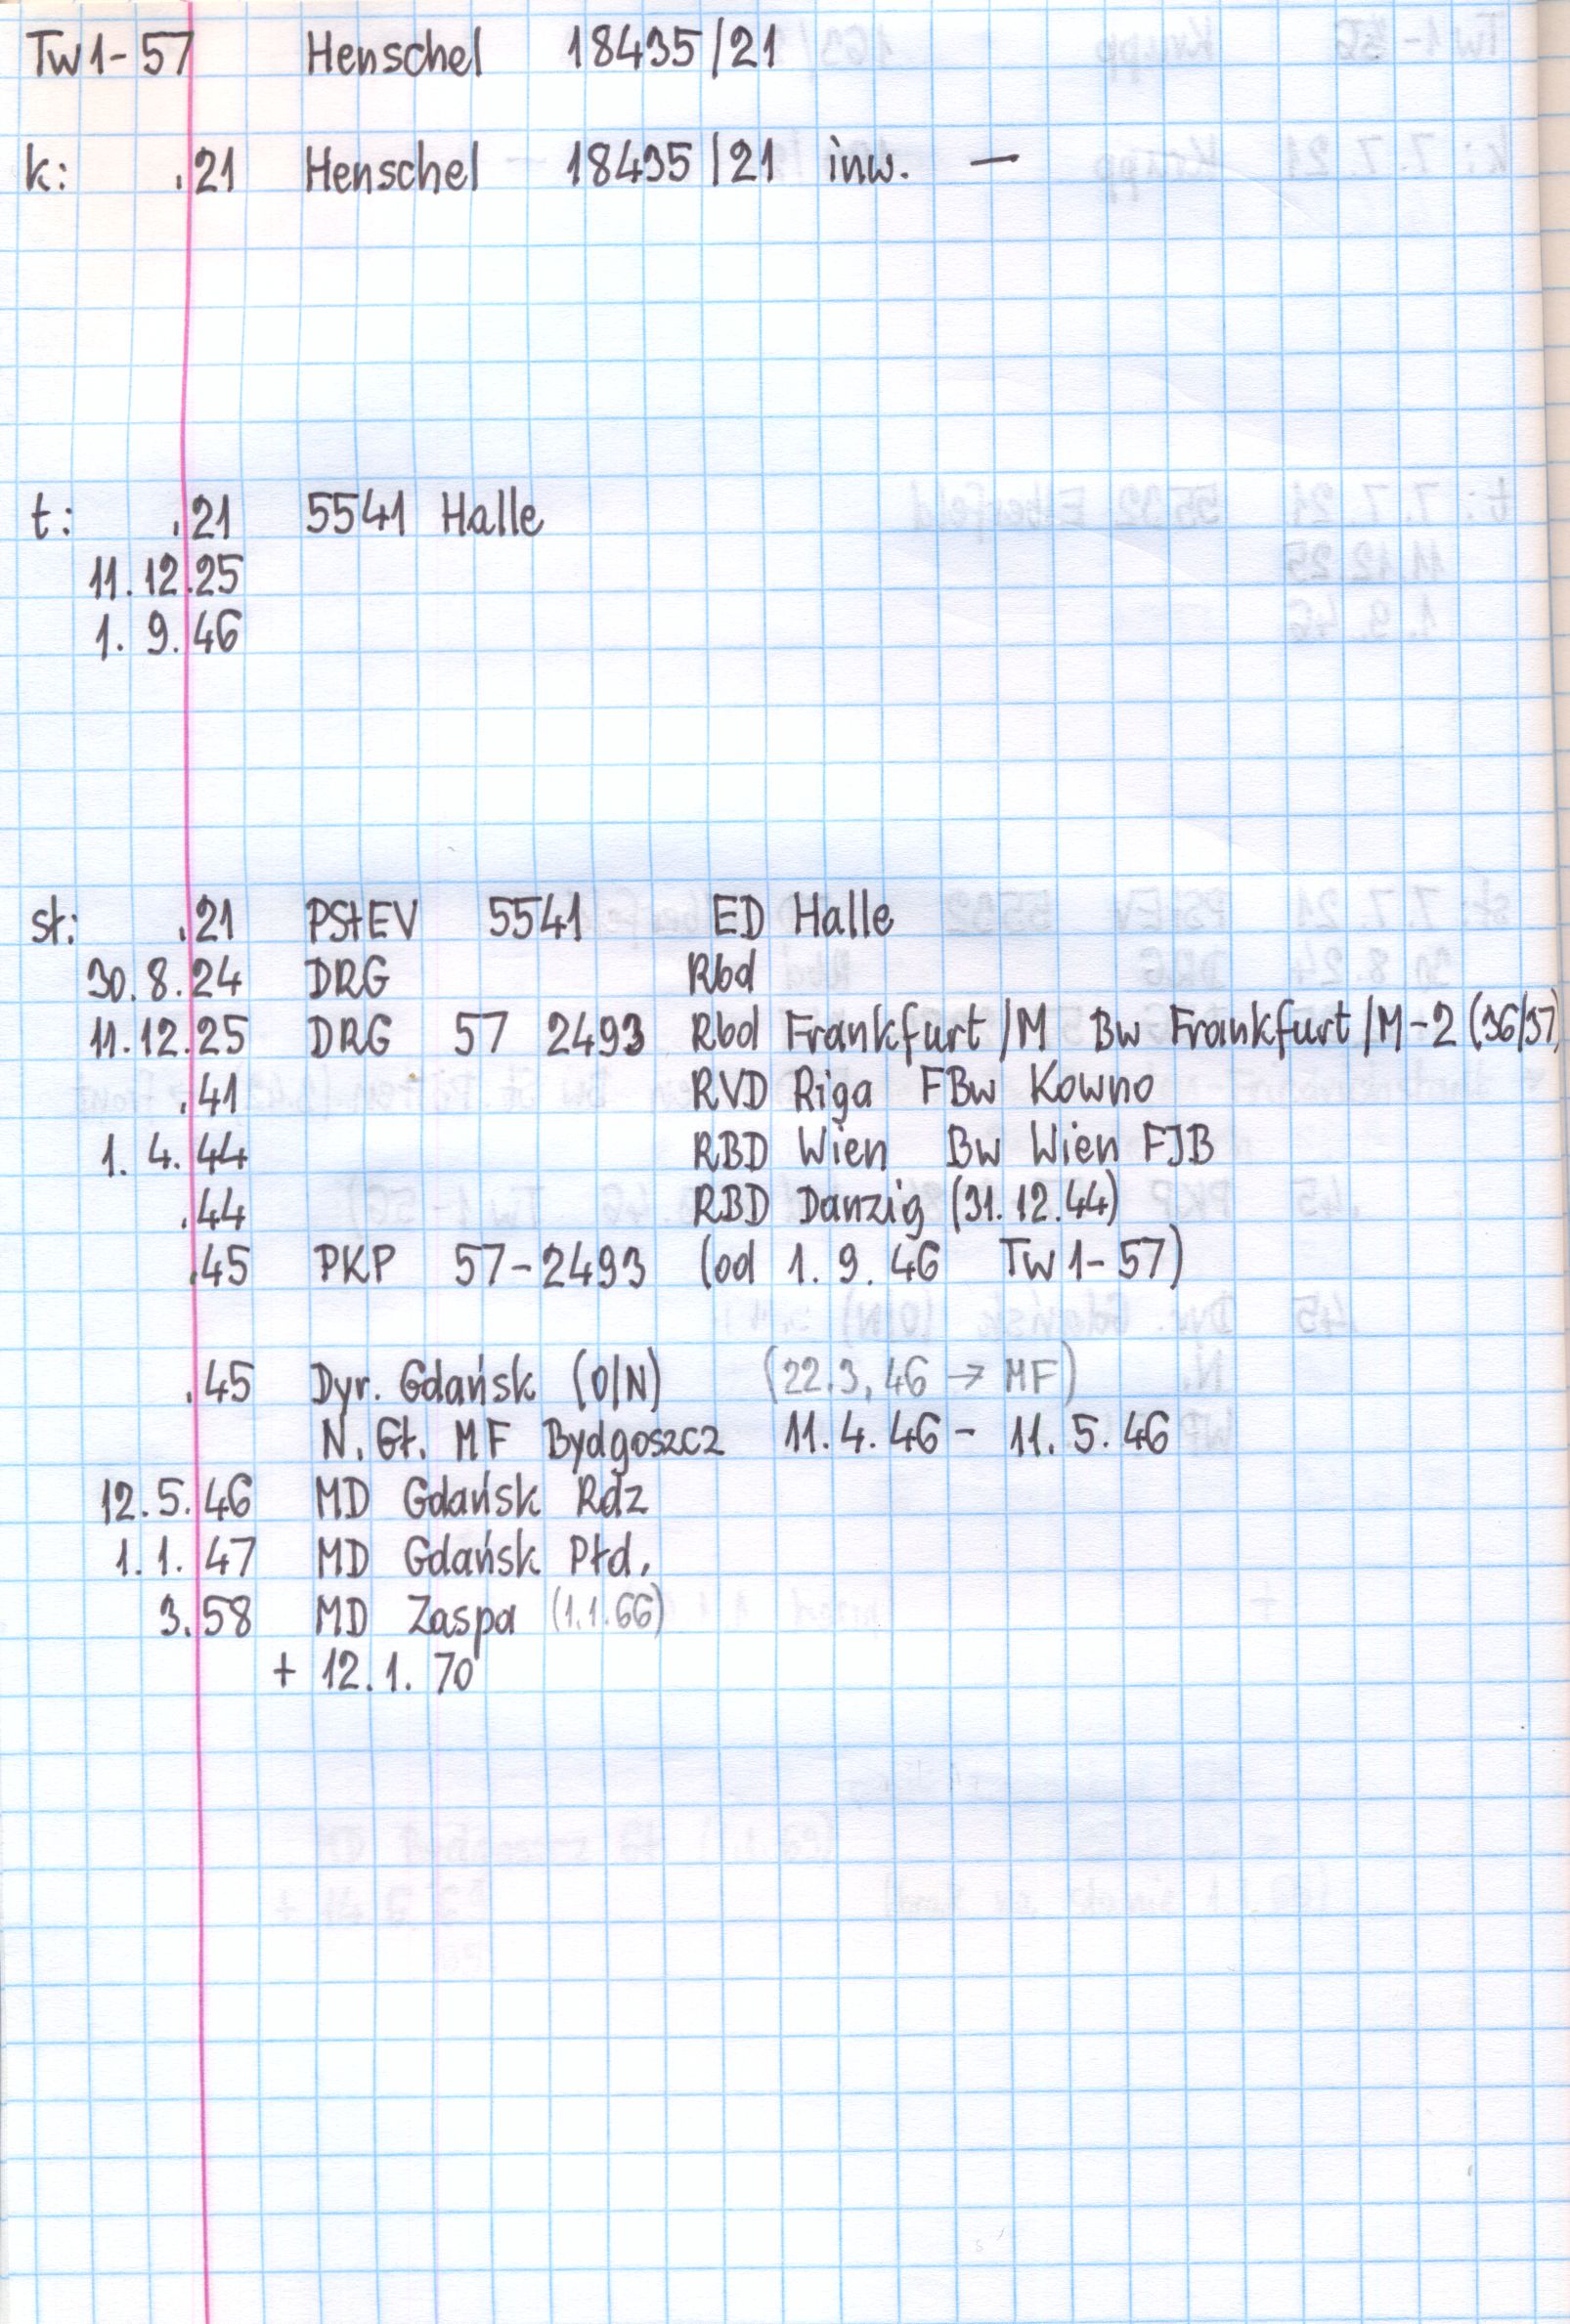 Tw1-57 Henschel 18435/21
k: .21 Henschel 18435/21 inw. —
t: .21 5541 Halle
11.12.25
1. 9. 46
st: .21 PStEV 5541 ED Halle
30. 8. 24 DRG Rbd
11.12.25 DRG 57 2493 Rbd Frankfurt/M Bw Frankfurt/M-2 (36/37)
.41 RVD Riga FBw Kowno
1. 4. 44 RBD Wien Bw Wien FJB
.44 RBD Danzig (31.12.44)
.45 PKP 57-2493 (od 1. 9. 46 Tw1-57)
.45 Dyr. Gdańsk (O/N) (22.3.46 → MF)
N. Gł. MF Bydgoszcz 11.4.46 - 11.5.46
12.5.46 MD Gdańsk Rdz
1.1.47 MD Gdańsk Płd.
3.58 MD Zaspa (1.1.66)
+ 12.1.70